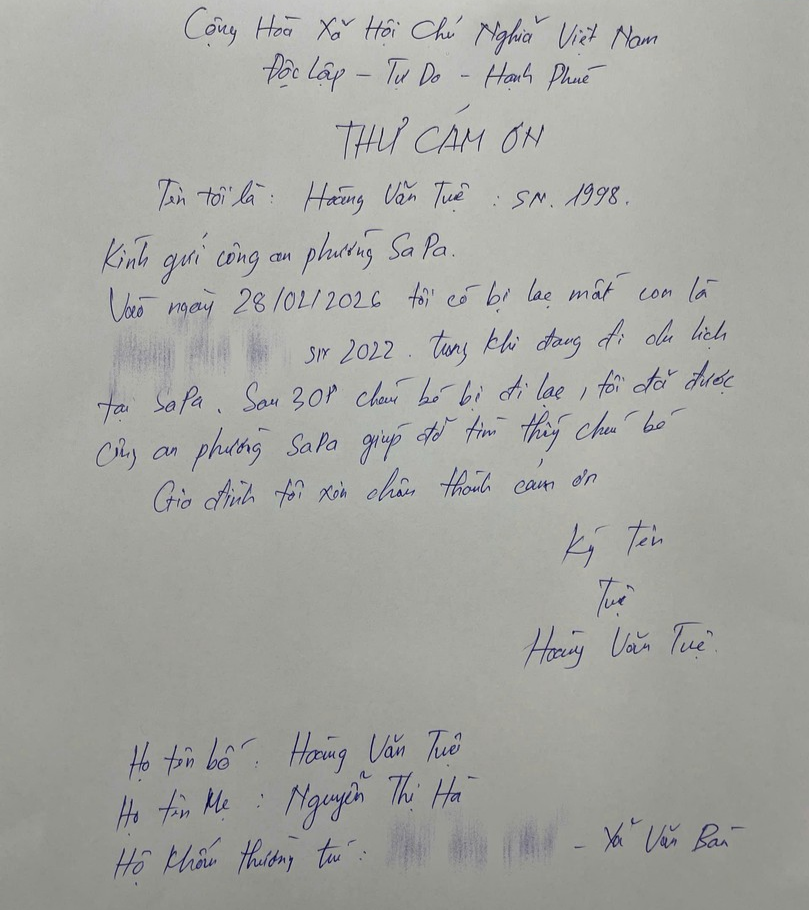 Cộng Hoà Xã Hội Chủ Nghĩa Việt Nam
Độc lập - Tự Do - Hạnh Phúc
THƯ CÁM ƠN
Tên tôi là : Hoàng Văn Tuệ : SN. 1998.
Kính gửi công an phường SaPa.
Vào ngày 28/02/2026 tôi có bị lạc mất con là
SN 2022. trong khi đang đi du lịch
tại SaPa. Sau 30P cháu bé bị đi lạc, tôi đã được
Công an phường SaPa giúp đỡ tìm thấy cháu bé
Gia đình tôi xin chân thành cám ơn
Ký tên
Tuệ
Hoàng Văn Tuệ.
Họ tên bố : Hoàng Văn Tuệ
Họ tên Mẹ : Nguyễn Thị Hà
Hộ khẩu thường trú : - Xã Văn Bàn